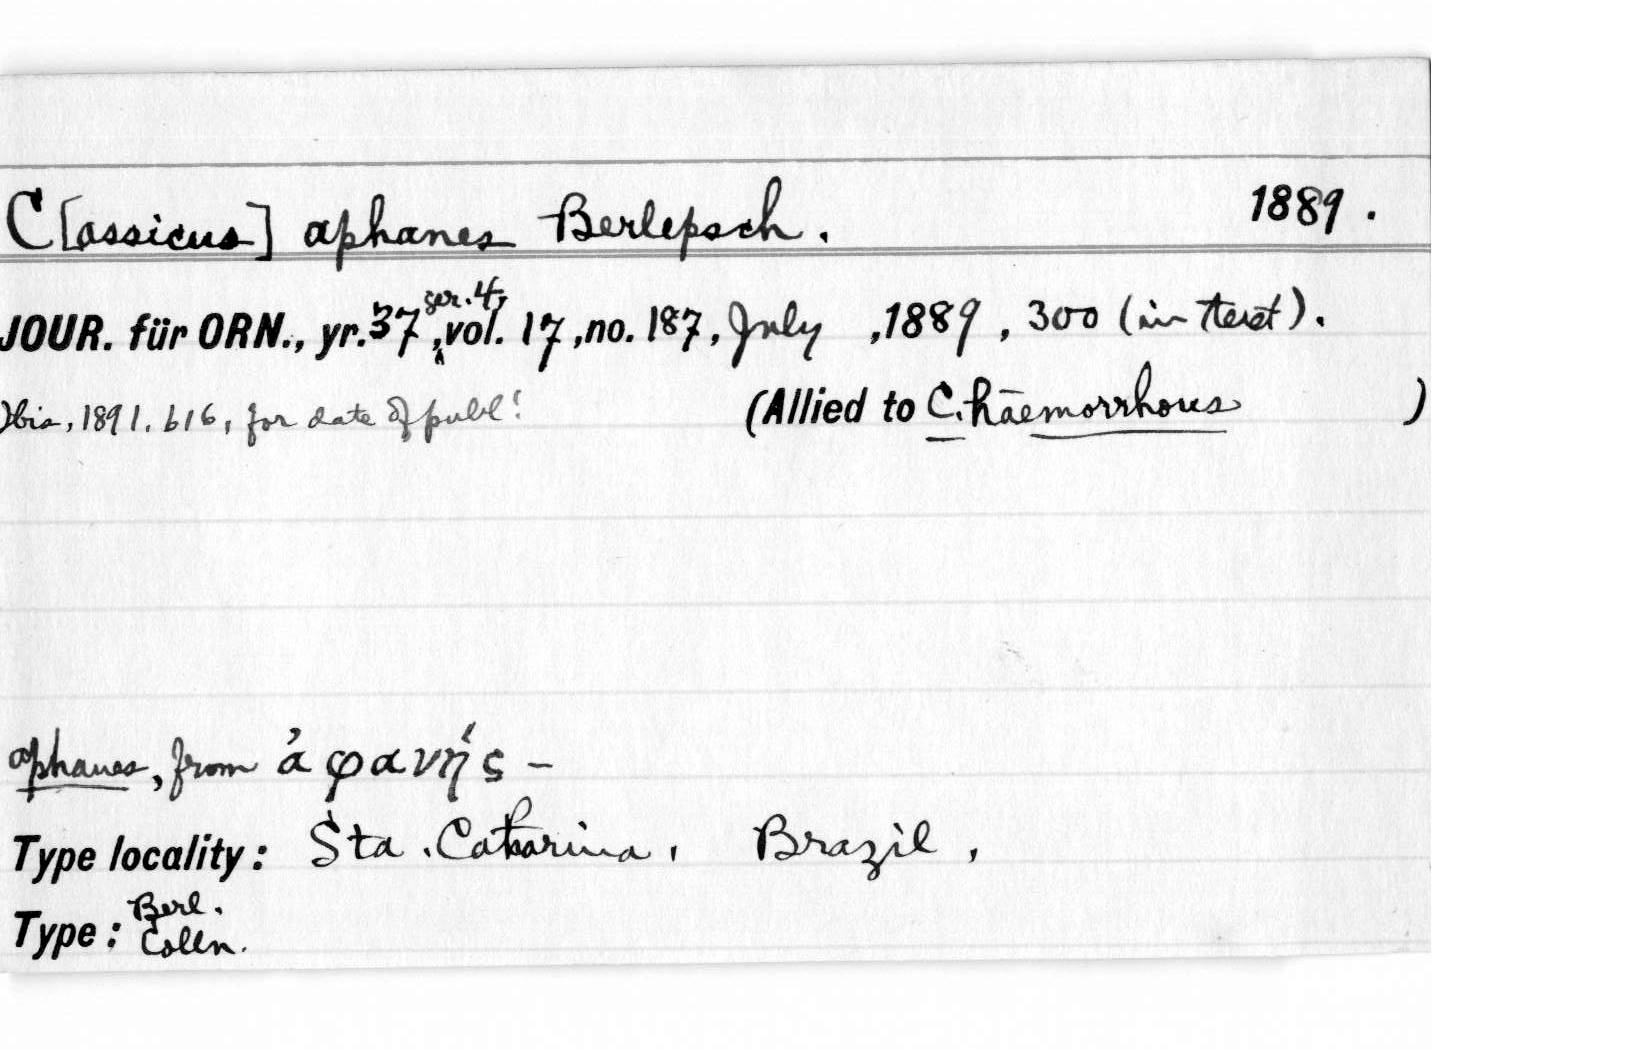 C[assicus] aphanes Berlepsch. 1889.
JOUR. für ORN., yr. 37, ser. 4, vol. 17, no. 187, July, 1889, 300 (in text).
Ibis, 1891, 616, for date of publ!
(Allied to C. haemorrhous)
aphanes, from ἀφανής –
Type locality: Sta. Catharina, Brazil,
Type: Berl. Colln.